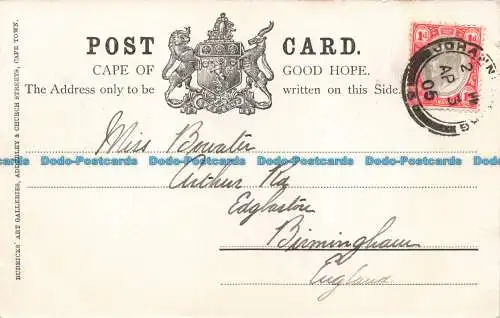 POST CARD.
CAPE OF GOOD HOPE.
The Address only to be written on this Side.
1d 1d
JOHANN
2
AP 3
05
Miss Bowater
Arthur Rd
Edgbaston
Birmingham
England
DUBRICKS' ART GALLERIES, ADDERLEY & CHURCH STREETS, CAPE TOWN.
Dodo-Postcards Dodo-Postcards Dodo-Postcards Dodo-Postcards